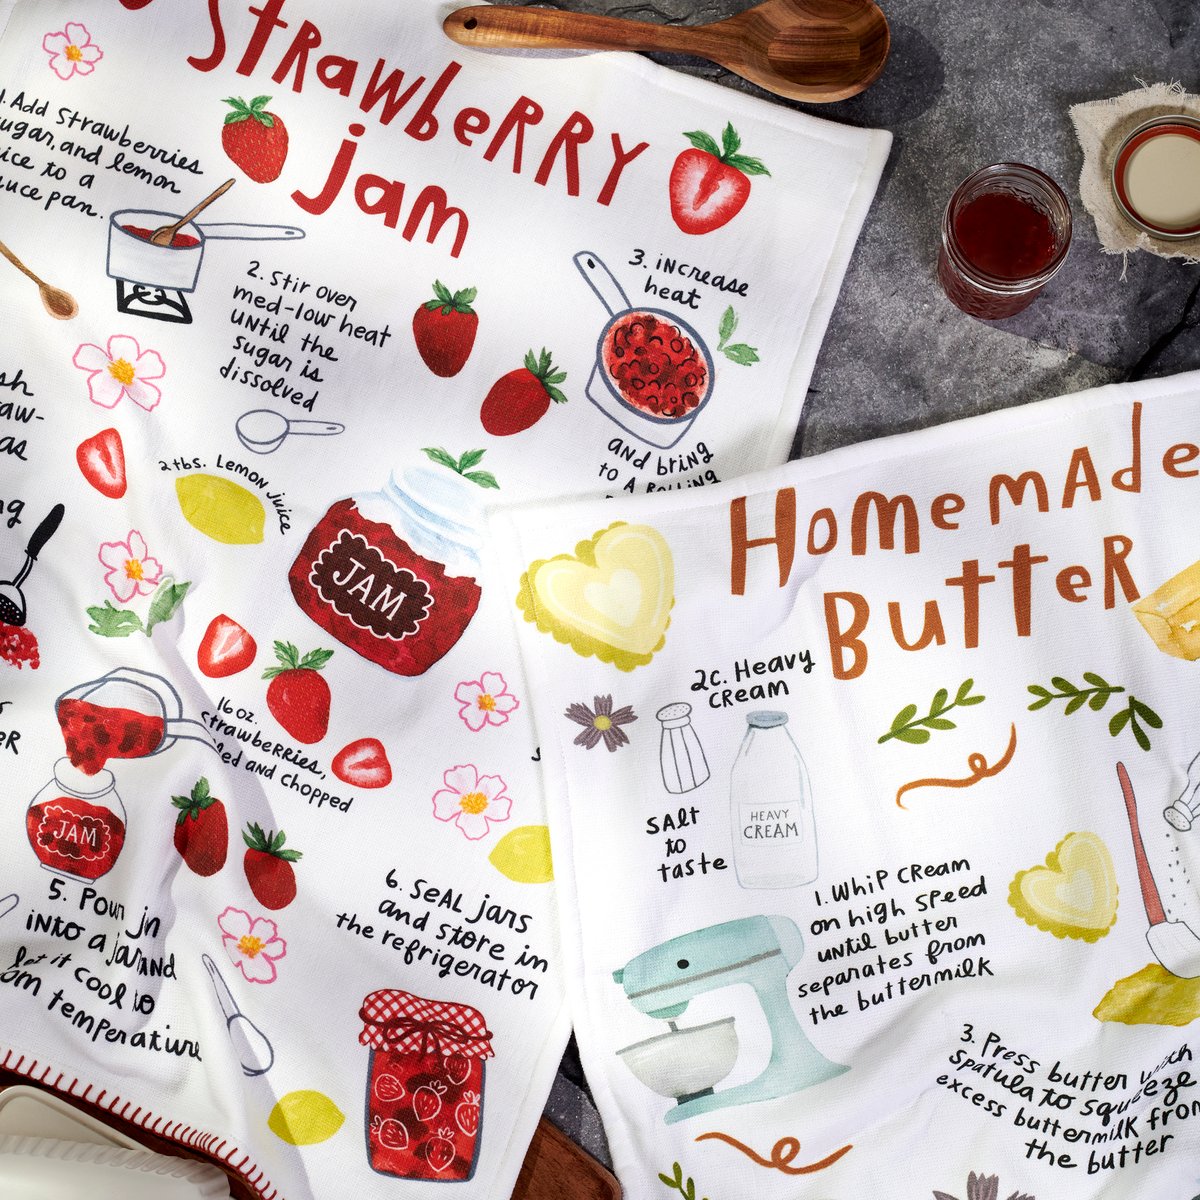 Strawberry
Jam
1. Add strawberries
sugar, and lemon
to a
pan.
2. Stir over
med-low heat
until the
sugar is
dissolved
3. increase
heat
and bring
to a rolling
as
2 tbs. Lemon juice
JAM
16 oz.
strawberries,
and chopped
JAM
5. Pour
into a jar and
let it cool to
temperature
6. Seal jars
and store in
the refrigerator
Homemade
Butter
2c. Heavy
cream
Salt
to
taste
HEAVY
CREAM
1. Whip cream
on high speed
until butter
separates from
the buttermilk
3. Press butter
spatula to squeeze
excess buttermilk from
the butter